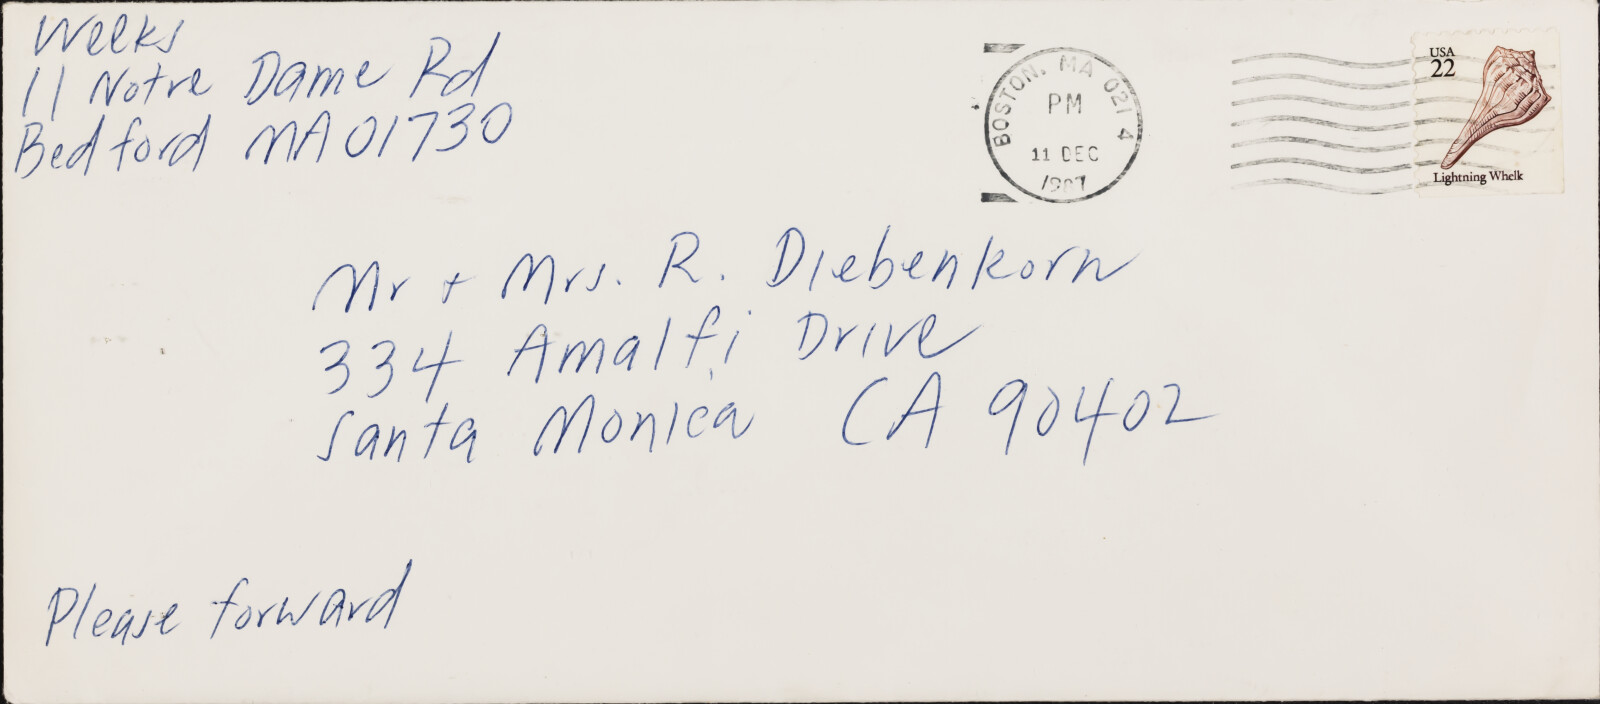 Weeks
11 Notre Dame Rd
Bedford MA 01730
BOSTON, MA 0214
PM
11 DEC
1987
USA
22
Lightning Whelk
Mr + Mrs. R. Diebenkorn
334 Amalfi Drive
Santa Monica CA 90402
Please forward